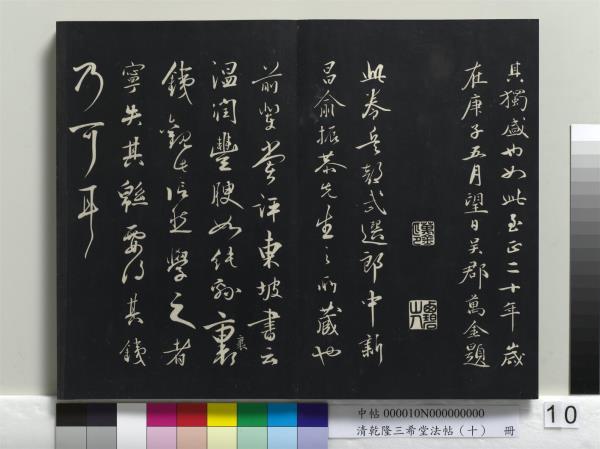 其獨盛也如此至正二十年歲
在庚子五月望日吳郡萬金題
此卷兵部武選郎中新
昌俞振恭先生之所藏也
前輩嘗評東坡書云
溫潤豐腴如純綿裹
鐵觀此信然學之者
寧失其綿要得其鐵
乃可耳
中帖 000010N000000000
清乾隆三希堂法帖（十） 冊
10